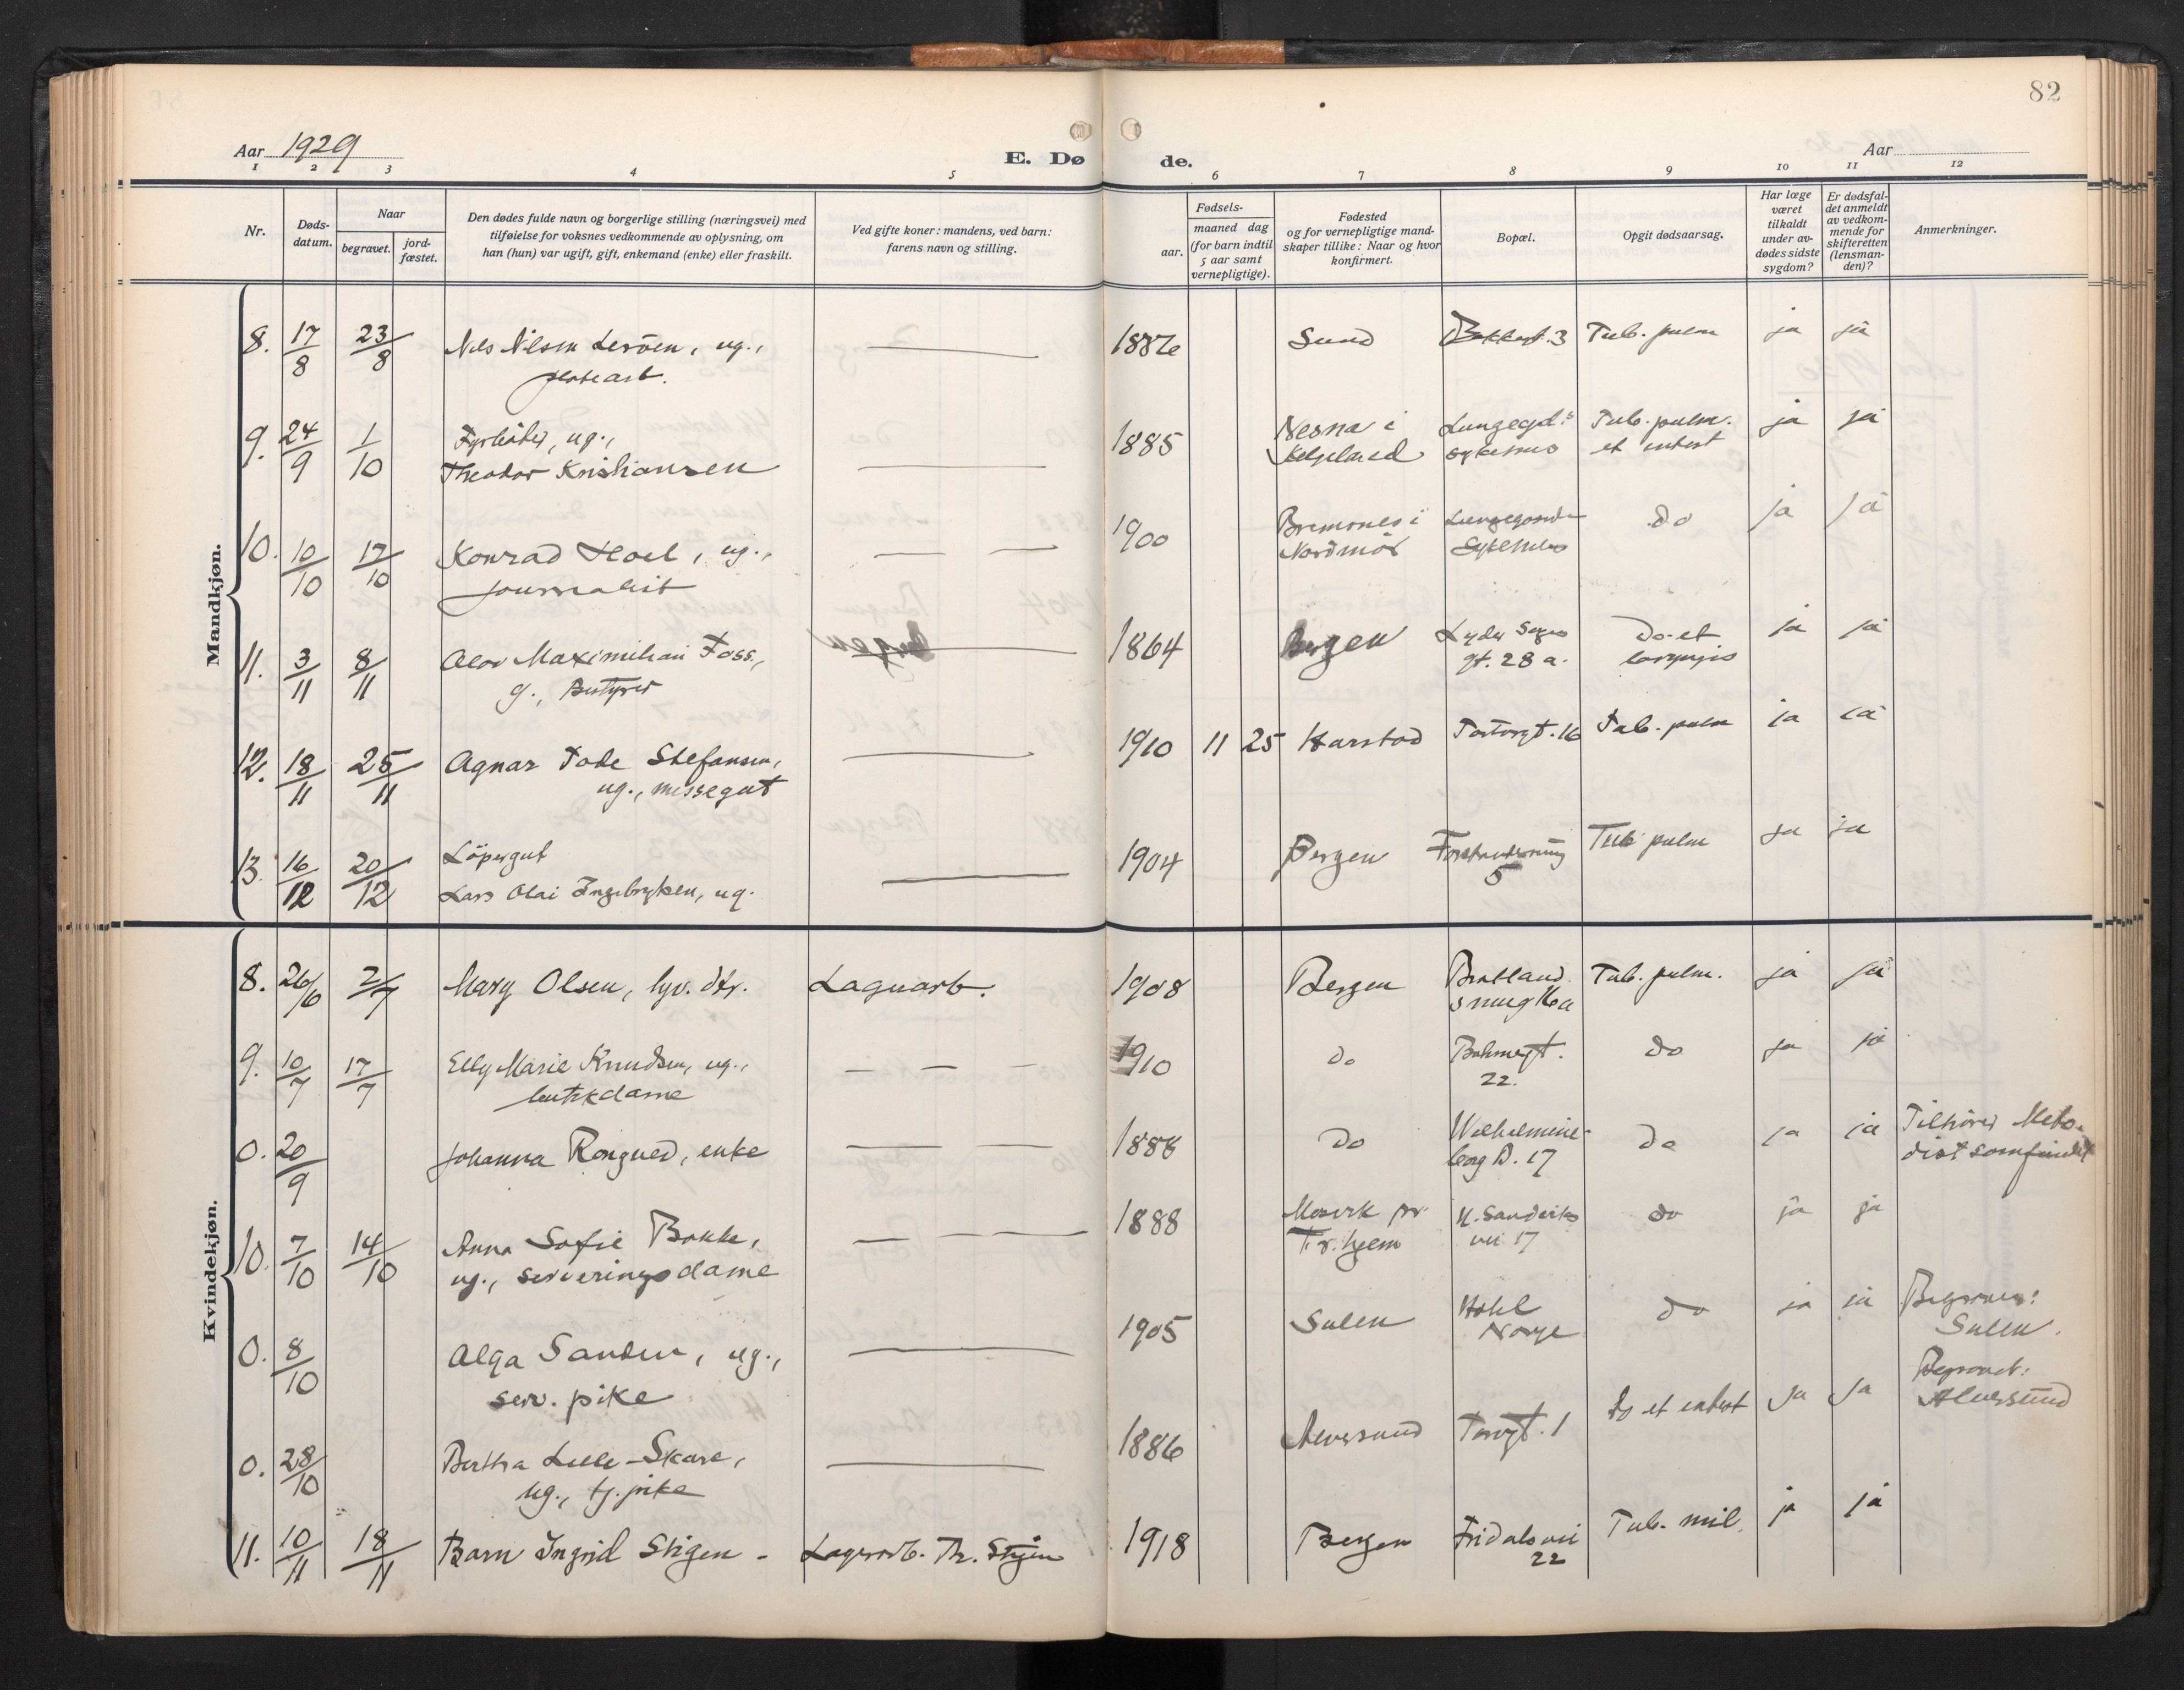 82
Aar 1929
E. Dø de.
Aar
1 2 3 4 5 6 7 8 9 10 11 12
Nr.
Døds-
datum.
Naar
begravet.
jord-
fæstet.
Den dødes fulde navn og borgerlige stilling (næringsvei) med
tilføielse for voksnes vedkommende av oplysning, om
han (hun) var ugift, gift, enkemand (enke) eller fraskilt.
Ved gifte koner: mandens, ved barn:
farens navn og stilling.
Fødsels-
aar.
maaned dag
(for barn indtil
5 aar samt
vernepligtige).
Fødested
og for vernepligtige mand-
skaper tillike: Naar og hvor
konfirmert.
Bopæl.
Opgit dødsaarsag.
Har læge
været
tilkaldt
under av-
dødes sidste
sygdom?
Er dødsfal-
det anmeldt
av vedkom-
mende for
skifteretten
(lensman-
den)?
Anmerkninger.
Mandkjøn.
8. 17/8 23/8 Nils Nilsen Lerøen, ug., — Sund 3 Tub. pulm ja ja
9. 24/9 1/10 Fyrbøter, ug., 1885 Nesna i Lungegd.s Tub. pulm. ja ja
Theodor Kristiansen — Helgeland sykehus et intest
10. 10/10 17/10 Konrad Hoel, ug., — — 1900 Bremsnes i Lungegaards Do ja ja
journalist Nordmör Sykehus
11. 3/11 8/11 Olav Maximilian Foss, Bergen 1864 Bergen Lyder Sagens Do et ja ja
g., Bestyrer gt. 28 a. laryngis
12. 18/11 25/11 Agnar Tode Stefansen, — 1910 11 25 Harstad Tub. pulm ja ja
ug., messegut
13. 16/12 20/12 Löpergut 1904 Bergen Tub pulm ja ja
Lars Olai Ingebrigtsen, ug. — 5
Kvindekjøn.
8. 26/6 2/7 Mary Olsen, hjv. dtr. Lagerarb. 1908 Bergen Bratland Tub. pulm. ja ja
smug 16a
9. 10/7 17/7 Elly Marie Knudsen, ug., — — — 1910 Do Do ja ja
butikdame 22.
0. 20/9 Johanna Rongved, enke — — 1888 Do Wilhelmine- Do ja ja Tilhörer Meto-
borg D. 17 distsamfundet
10. 7/10 14/10 Anna Sofie Bakke, — — — 1888 Mosvik pr N. Sandviks do ja ja
ug., serveringsdame Tr.hjem vei 17
0. 8/10 Olga Sanden, ug., — 1905 Sulen Hotel do ja ja Begraves:
serv. pike Norge Sulen.
0. 28/10 Bertha Lille-Skare, — 1886 Alversund Torvgt. 1 Do et intest ja ja Begravet:
ug., tj. pike Alversund
11. 10/11 18/11 Barn Ingrid Stigen - Lagerarb. Th. Stigen 1918 Bergen Fridalsvei Tub. mil. ja ja
22